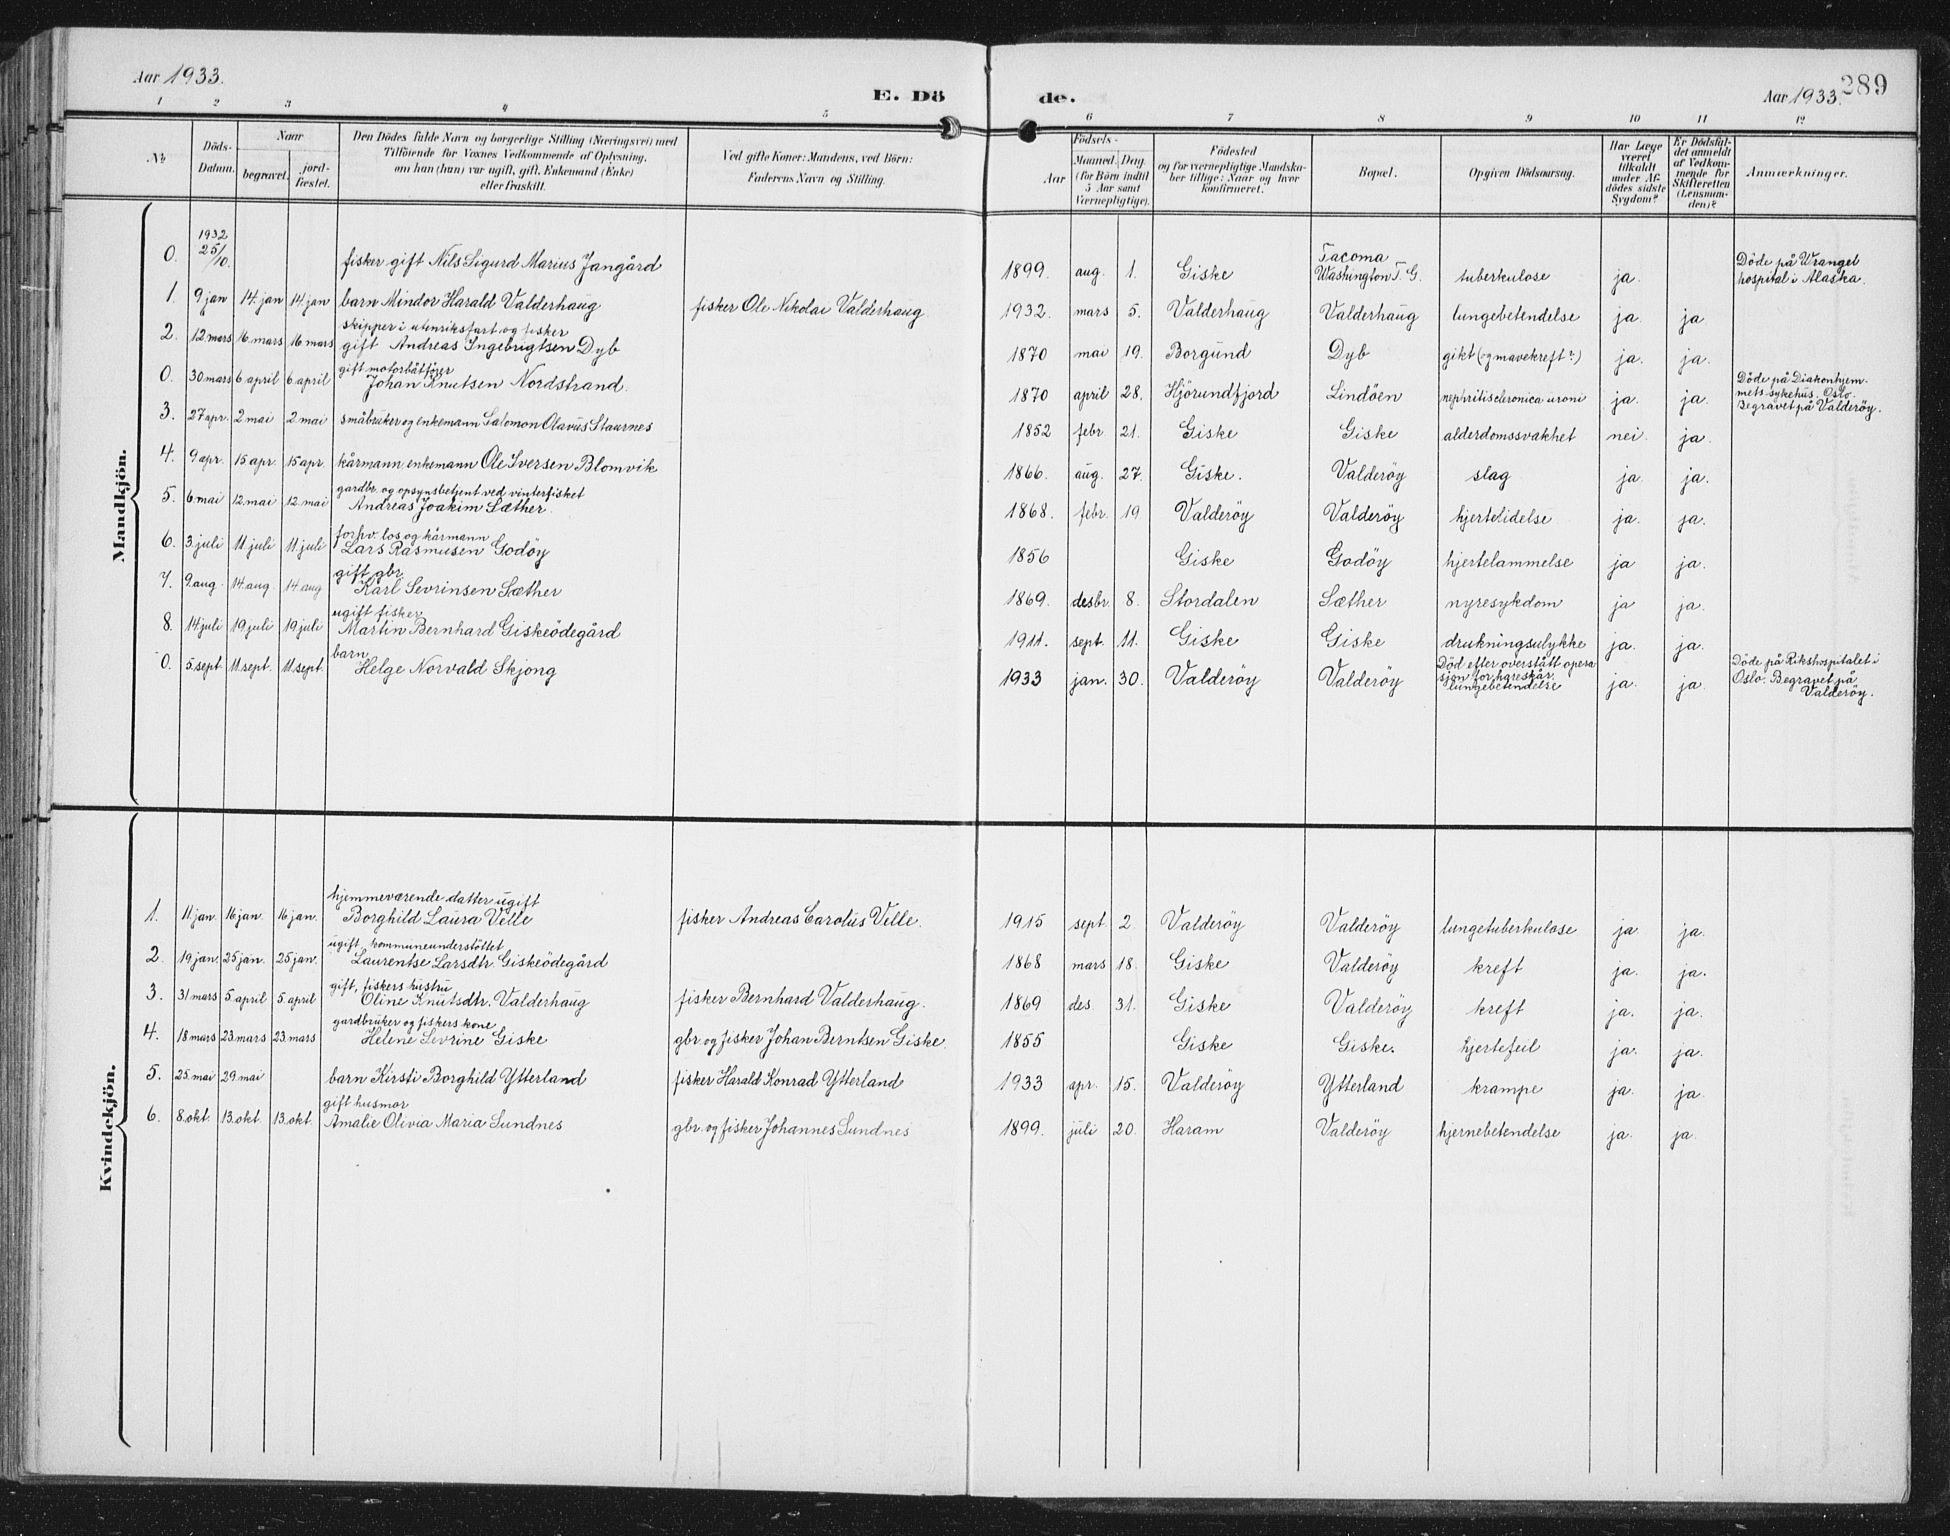 Aar 1933.
E. Dö
de.
Aar 1933.
289
1 2 3 4 5 6 7 8 9 10 11 12
№
Döds-
Datum.
Naar
begravet.
jord-
fæstet.
Den Dödes fulde Navn og borgerlige Stilling (Næringsvei) med
Tilföiende for Voxnes Vedkommende af Oplysning,
om han (hun) var ugift, gift, Enkemand (Enke)
eller fraskilt.
Ved gifte Koner: Mandens, ved Börn:
Faderens Navn og Stilling.
Födsels-
Aar
Maaned. Dag.
(for Börn indtil
5 Aar samt
Værnepligtige).
Födested
og for værnepligtige Mandska-
ber tillige: Naar og hvor
konfirmeret.
Bopæl.
Opgiven Dödsaarsag.
Har Læge
været
tilkaldt
under Af-
dödes sidste
Sygdom?
Er Dödsfal-
det anmeldt
af Vedkom-
mende for
Skifteretten
(Lensman-
den)?
Anmærkninger.
Mandkjön.
0. 1932 25/10. fisker gift Nils Sigurd Marius Jangård 1899. aug. 1. Giske Tacoma Washington T. G. tuberkulose ja. Döde på Wrangel hospital i Alaska.
1. 9 jan 14. jan 14 jan barn Mindor Harald Valderhaug fisker Ole Nikolai Valderhaug 1932. mars 5. Valderhaug Valderhaug lungebetendelse ja. ja
2. 12 mars 16 mars 16 mars skipper i utenriksfart og fisker gift Andreas Ingebrigtsen Dyb 1870 mai 19. Borgund Dyb gikt (og mavekreft?) ja. ja.
0. 30 mars 6 april 6 april gift motorbåtförer Johan Knutsen Nordstrand. 1870 april 28. Hjörundfjord Lindöen nephritis cleronica uroni ja. ja. Döde på Diakonhjem-mets sykehus. Oslo. Begravet på Valderöy.
3. 27 apr. 2 mai 2 mai småbruker og enkemann Salomon Olavus Staurnes 1852 febr 21. Giske Giske alderdomssvakhet nei. ja.
4. 9 apr. 15 apr. 15 apr. kårmann, enkemann Ole Iversen Blomvik 1866. aug. 27. Giske. Valderöy slag ja. ja.
5. 6 mai 12 mai 12 mai gardbr. og opsynsbetjent ved vinterfisket Andreas Joakim Sæther. 1868. febr. 19 Valderöy Valderöy hjertelidelse ja. ja.
6. 3 juli 11 juli 11 juli forhv. los og kårmann Lars Rasmusen Godöy 1856 Giske Godöy hjertelammelse ja ja.
7. 9. aug. 14. aug. 14. aug gift gbr. Karl Sevrinsen Sæther 1869. desbr. 8. Stordalen Sæther nyresykdom ja ja.
8. 14 juli 19 juli 19 juli ugift fisker Martin Bernhard Giskeödegård 1911. sept. 11. Giske Giske drukningsulykke ja. ja.
0. 5 sept 11. sept. 11. sept. barn Helge Norvald Skjong 1933 jan. 30. Valderöy Valderöy Död efter overstått opera sjon for hareskår. lungebetendelse ja. ja. Döde på Rikshospitalet i Oslo. Begravet på Valderöy.
Kvindekjön.
1. 11 jan. 16 jan. 16 jan. hjemmeværende datter ugift Borghild Laura Velle fisker Andreas Carolus Velle. 1915 sept 2. Valderöy Valderöy lungetuberkulose ja ja.
2. 19 jan. 25 jan. 25 jan. ugift, kommuneunderstöttet Laurentse Larsdtr. Giskeödegård 1868 mars 18. Giske Valderöy kreft ja. ja.
3. 31 mars 5. april 5. april gift, fiskers hustru Oline Knutsdtr. Valderhaug fisker Bernhard Valderhaug. 1869 des. 31. Giske Valderöy kreft ja. ja.
4. 18 mars 23. mars 23. mars gardbruker og fiskers kone Helene Sevrine Giske gbr. og fisker Johan Berntsen Giske. 1855 Giske Giske. hjertefeil ja. ja.
5. 25. mai 29 mai barn Kirsti Borghild Ytterland fisker Harald Konrad Ytterland 1933 apr. 15. Valderöy Ytterland krampe ja. ja.
6. 8. okt. 13. okt 13. okt. gift husmor Amalie Olivia Maria Sundnes gbr. og fisker Johannes Sundnes 1899. juli 20. Haram Valderöy hjernebetendelse ja. ja.